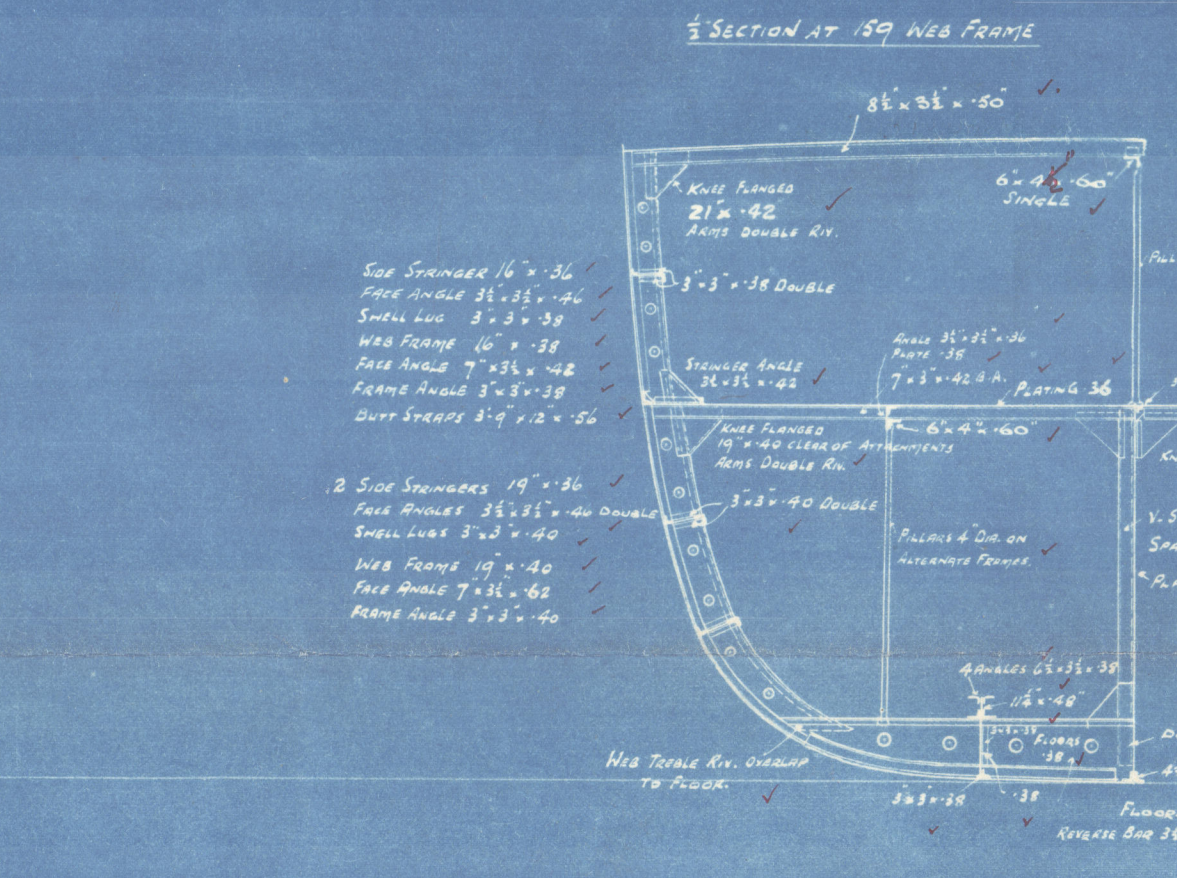 ½ SECTION AT 159 WEB FRAME
8½" x 3½" x .50"
KNEE FLANGED
21" x .42"
ARMS DOUBLE RIV.
.60"
SINGLE
PILL
SIDE STRINGER 16" x .36
FACE ANGLE 3½" x 3½" x .46
SHELL LUG 3" x 3" x .38
WEB FRAME 16" x .38
FACE ANGLE 7" x 3½ x .42
FRAME ANGLE 3" x 3" x .38
BUTT STRAPS 3'-9" x 12" x .56
3" x 3" x .38 DOUBLE
STRINGER ANGLE
3½ x 3½ x .42
ANGLE 3½" x 3½" x .36
PLATE .38
7" x 3" x .42 B.A.
PLATING .36
6" x 4" x .60"
KNEE FLANGED
19" x .40 CLEAR OF ATTACHMENTS
ARMS DOUBLE RIV.
KN
2 SIDE STRINGERS 19" x .36
FACE ANGLES 3½" x 3½" x .46 DOUBLE
SHELL LUGS 3" x 3" x .40
WEB FRAME 19" x .40
FACE ANGLE 7" x 3½" x .62
FRAME ANGLE 3" x 3" x .40
3" x 3" x .40 DOUBLE
PILLARS 4" DIA. ON
ALTERNATE FRAMES.
V. S
SPA
PLA
4 ANGLES 6½ x 3½ x .38
11¼" x .48"
3x3x.38
FLOORS
.38
WEB TREBLE RIV. OVERLAP
TO FLOOR.
3" x 3" x .38
.38
FLOOR
REVERSE BAR 3½